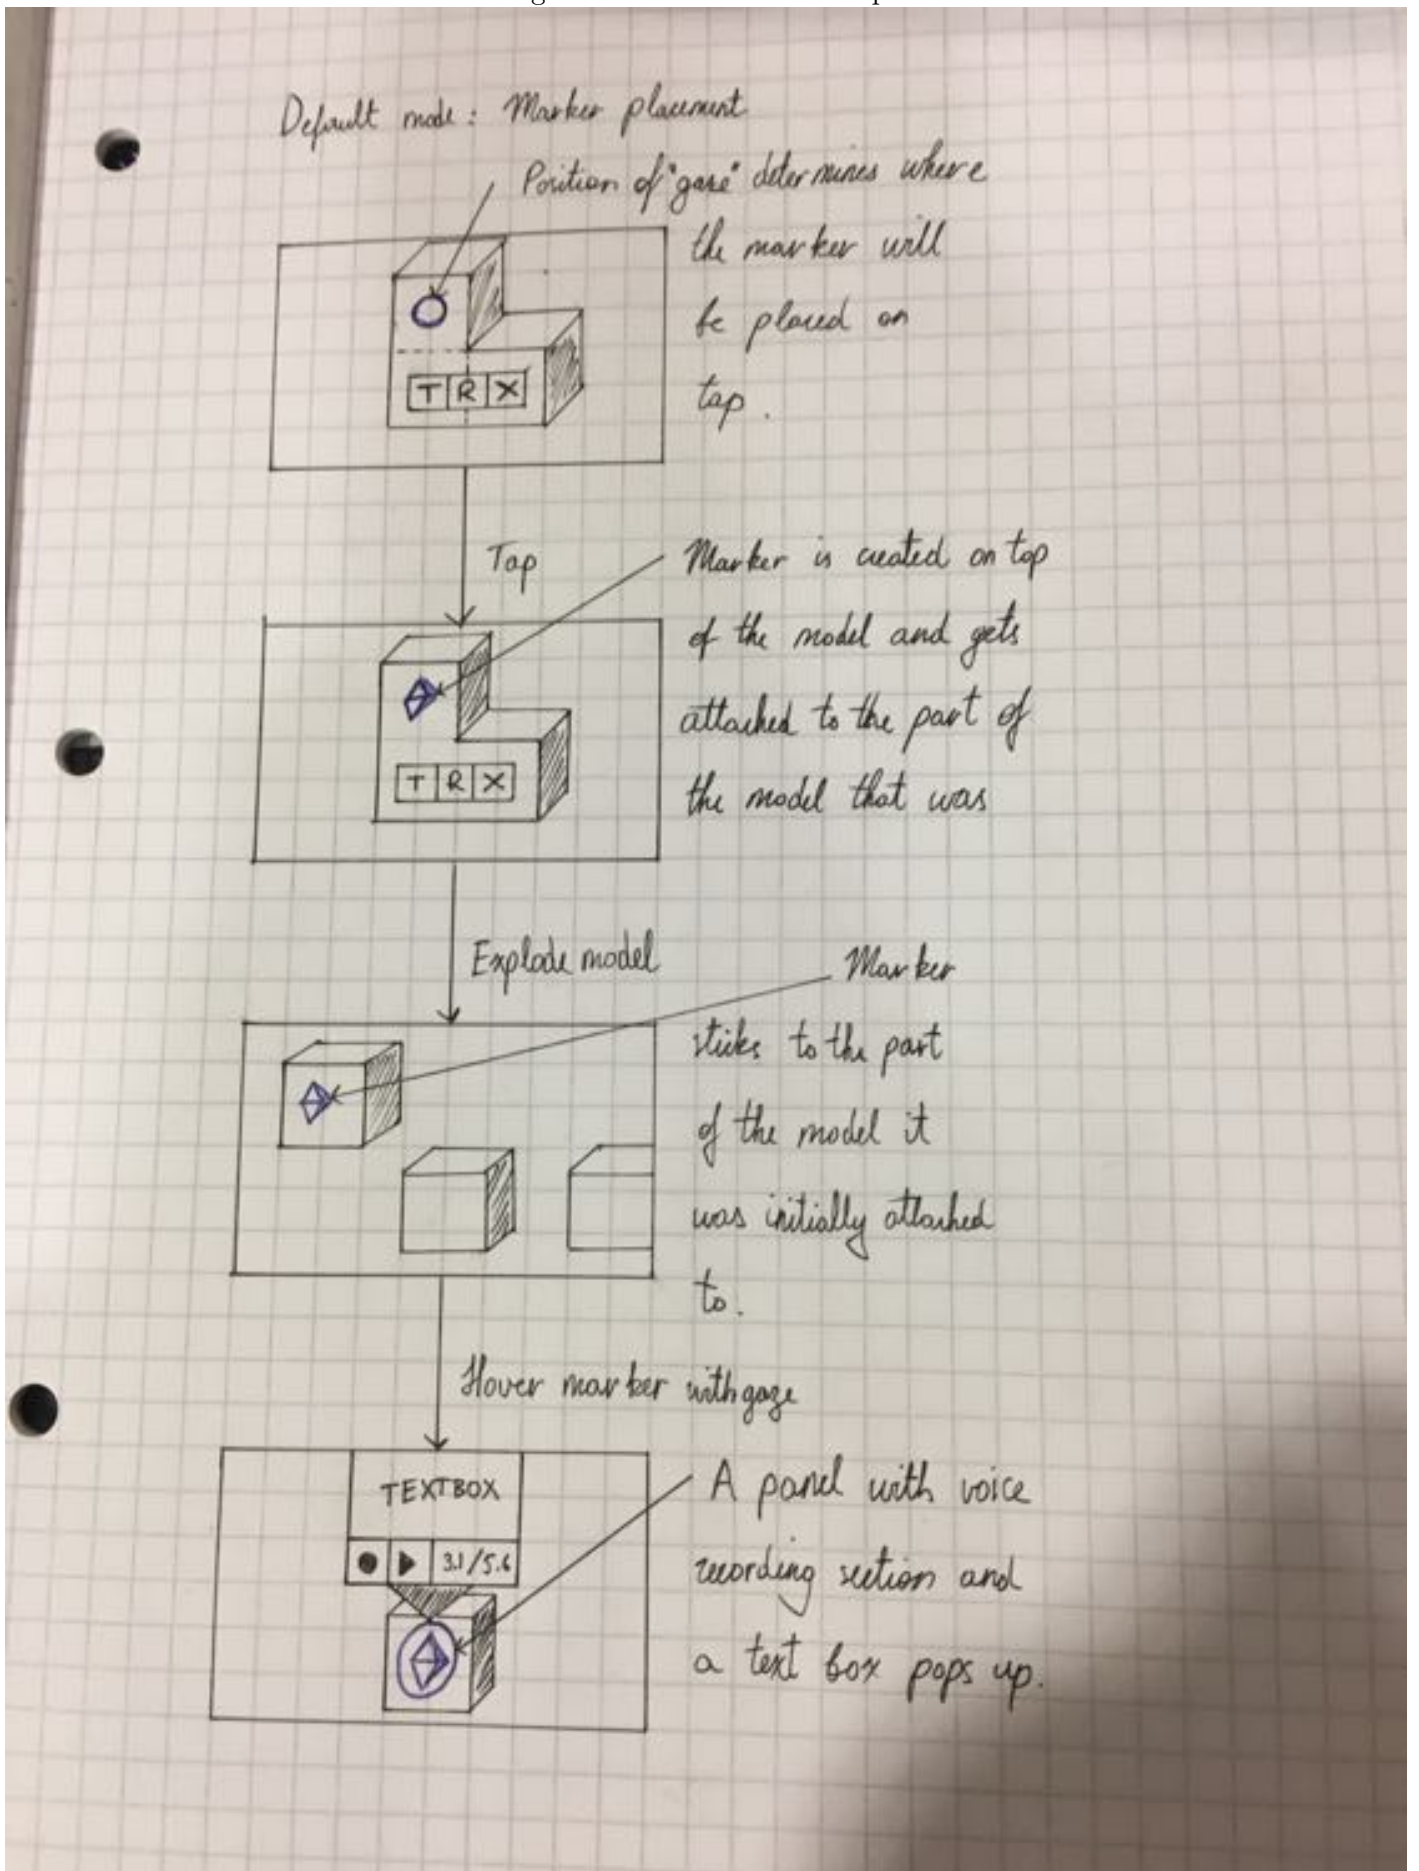 Default mode: Marker placement
Position of "gaze" determines where
the marker will
be placed on
tap.
T R X
Tap
Marker is created on top
of the model and gets
attached to the part of
the model that was
T R X
Explode model
Marker
sticks to the part
of the model it
was initially attached
to.
Hover marker with gaze
TEXTBOX
3.1/5.6
A panel with voice
recording section and
a text box pops up.